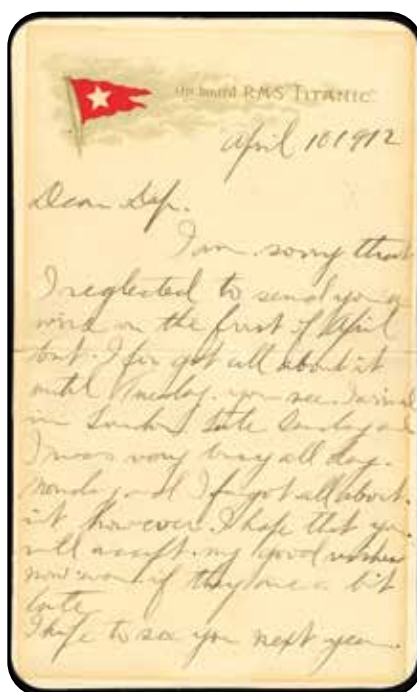 On board RMS TITANIC
April 10 1912
Dear
I am sorry that
I neglected to send you a
wire on the first of April
but I for got all about it
until Tuesday. you see I arrived
in London late Sunday and
I was very busy all day
Monday and I forgot all about
it however I hope that you
will accept my good wishes
now even if they are a bit
late
I hope to see you next year.